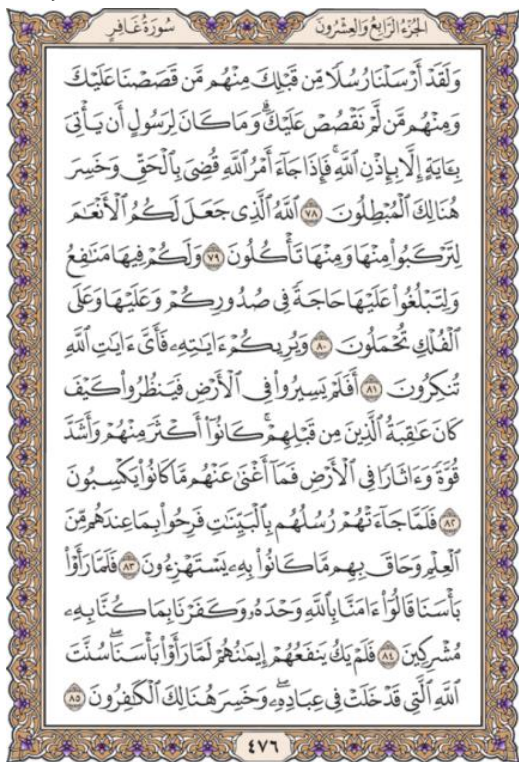 الجزء الرابع والعشرون
سورة غافر
وَلَقَدْ أَرْسَلْنَا رُسُلًا مِّن قَبْلِكَ مِنْهُم مَّن قَصَصْنَا عَلَيْكَ
وَمِنْهُم مَّن لَّمْ نَقْصُصْ عَلَيْكَ ۗ وَمَا كَانَ لِرَسُولٍ أَن يَأْتِىَ
بِـَٔايَةٍ إِلَّا بِإِذْنِ ٱللَّهِ ۚ فَإِذَا جَآءَ أَمْرُ ٱللَّهِ قُضِىَ بِٱلْحَقِّ وَخَسِرَ
هُنَالِكَ ٱلْمُبْطِلُونَ ٧٨ ٱللَّهُ ٱلَّذِى جَعَلَ لَكُمُ ٱلْأَنْعَٰمَ
لِتَرْكَبُوا۟ مِنْهَا وَمِنْهَا تَأْكُلُونَ ٧٩ وَلَكُمْ فِيهَا مَنَٰفِعُ
وَلِتَبْلُغُوا۟ عَلَيْهَا حَاجَةً فِى صُدُورِكُمْ وَعَلَيْهَا وَعَلَى
ٱلْفُلْكِ تُحْمَلُونَ ٨٠ وَيُرِيكُمْ ءَايَٰتِهِۦ فَأَىَّ ءَايَٰتِ ٱللَّهِ
تُنكِرُونَ ٨١ أَفَلَمْ يَسِيرُوا۟ فِى ٱلْأَرْضِ فَيَنظُرُوا۟ كَيْفَ
كَانَ عَٰقِبَةُ ٱلَّذِينَ مِن قَبْلِهِمْ ۚ كَانُوٓا۟ أَكْثَرَ مِنْهُمْ وَأَشَدَّ
قُوَّةً وَءَاثَارًا فِى ٱلْأَرْضِ فَمَآ أَغْنَىٰ عَنْهُم مَّا كَانُوا۟ يَكْسِبُونَ
٨٢ فَلَمَّا جَآءَتْهُمْ رُسُلُهُم بِٱلْبَيِّنَٰتِ فَرِحُوا۟ بِمَا عِندَهُم مِّنَ
ٱلْعِلْمِ وَحَاقَ بِهِم مَّا كَانُوا۟ بِهِۦ يَسْتَهْزِءُونَ ٨٣ فَلَمَّا رَأَوْا۟
بَأْسَنَا قَالُوٓا۟ ءَامَنَّا بِٱللَّهِ وَحْدَهُۥ وَكَفَرْنَا بِمَا كُنَّا بِهِۦ
مُشْرِكِينَ ٨٤ فَلَمْ يَكُ يَنفَعُهُمْ إِيمَٰنُهُمْ لَمَّا رَأَوْا۟ بَأْسَنَا ۖ سُنَّتَ
ٱللَّهِ ٱلَّتِى قَدْ خَلَتْ فِى عِبَادِهِۦ ۖ وَخَسِرَ هُنَالِكَ ٱلْكَٰفِرُونَ ٨٥
٤٧٦